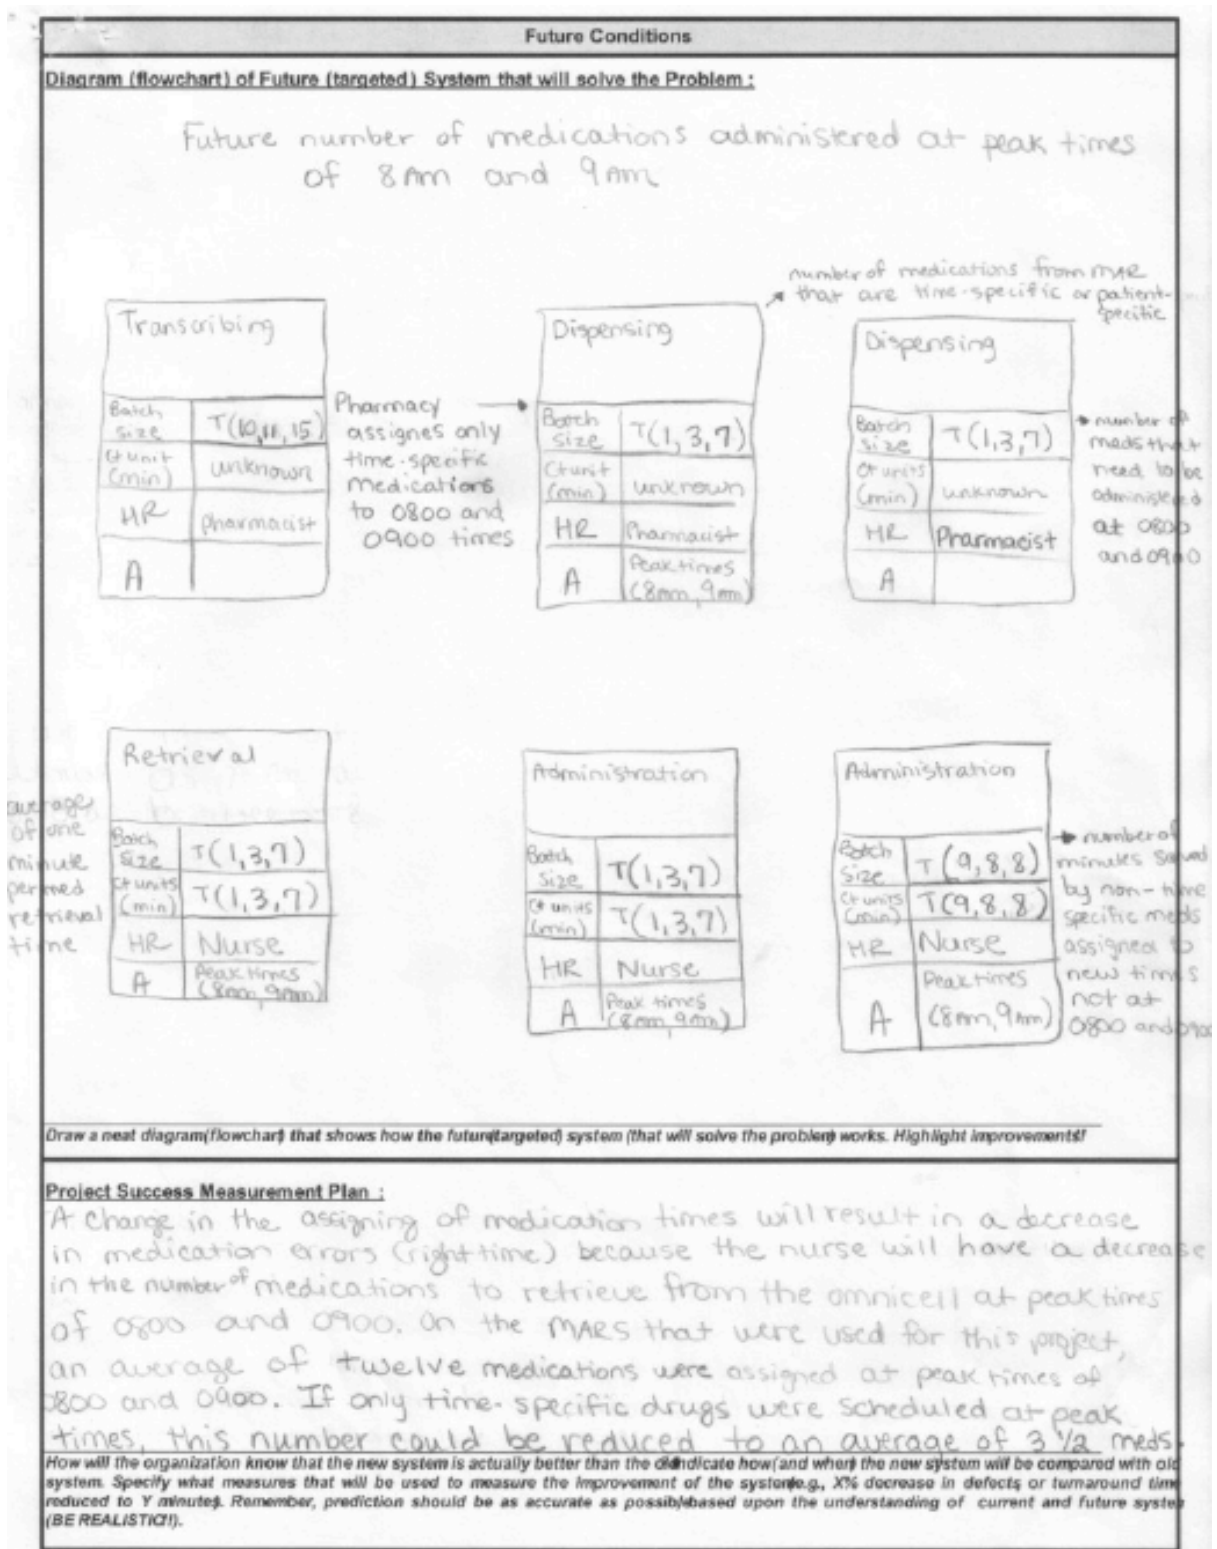 Future Conditions
Diagram (flowchart) of Future (targeted) System that will solve the Problem :
Future number of medications administered at peak times
of 8am and 9am
number of medications from MAR
that are time-specific or patient-
specific
Transcribing
Batch size T(10,11,15)
Ct unit (min) unknown
HR pharmacist
A
Pharmacy
assignes only
time-specific
medications
to 0800 and
0900 times
Dispensing
Batch size T(1,3,7)
Ct unit (min) unknown
HR Pharmacist
A Peak times (8am, 9am)
Dispensing
Batch size T(1,3,7)
Ct units (min) unknown
HR Pharmacist
A
number of
meds that
need to be
administered
at 0800
and 0900
average
of one
minute
per med
retrieval
time
Retrieval
Batch size T(1,3,7)
Ct units (min) T(1,3,7)
HR Nurse
A Peak times (8am, 9am)
Administration
Batch size T(1,3,7)
Ct units (min) T(1,3,7)
HR Nurse
A Peak times (8am, 9am)
Administration
Batch size T(9,8,8)
Ct units (min) T(9,8,8)
HR Nurse
A Peak times (8am, 9am)
number of
minutes saved
by non-time
specific meds
assigned to
new times
not at
0800 and 0900
Draw a neat diagram(flowchart) that shows how the future(targeted) system (that will solve the problem) works. Highlight improvements!
Project Success Measurement Plan :
A change in the assigning of medication times will result in a decrease
in medication errors (right time) because the nurse will have a decrease
in the number of medications to retrieve from the omnicell at peak times
of 0800 and 0900. On the MARS that were used for this project,
an average of twelve medications were assigned at peak times of
0800 and 0900. If only time-specific drugs were scheduled at peak
times, this number could be reduced to an average of 3 1/2 meds.
How will the organization know that the new system is actually better than the old indicate how(and when) the new system will be compared with old
system. Specify what measures that will be used to measure the improvement of the system e.g., X% decrease in defects or turnaround time
reduced to Y minutes. Remember, prediction should be as accurate as possible based upon the understanding of current and future system
(BE REALISTIC!!).